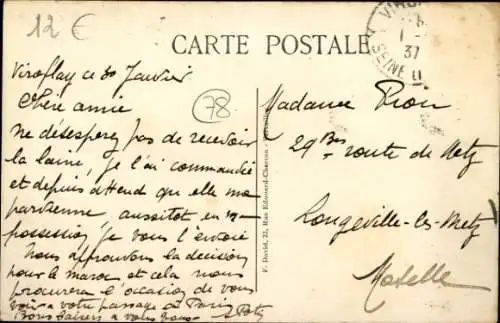 12 €
CARTE POSTALE
VIROF
1 -
37
SEINE
Viroflay ce 30 Janvier
78
Chère amie
Ne désesperez pas de recevoir
la laine, je l'ai commandée
et depuis attend que elle me
parvienne, aussitot en
possession je vous l'envoie
Nous approuvons la décision
pour le maroc et cela nous
procurera l'occasion de vous
voir à votre passage à Paris
Bons baisers à vous
F. David, 22, Rue Edouard-Charton
Madame Pion
29 Bis route de Metz
Longeville-les-Metz
Moselle